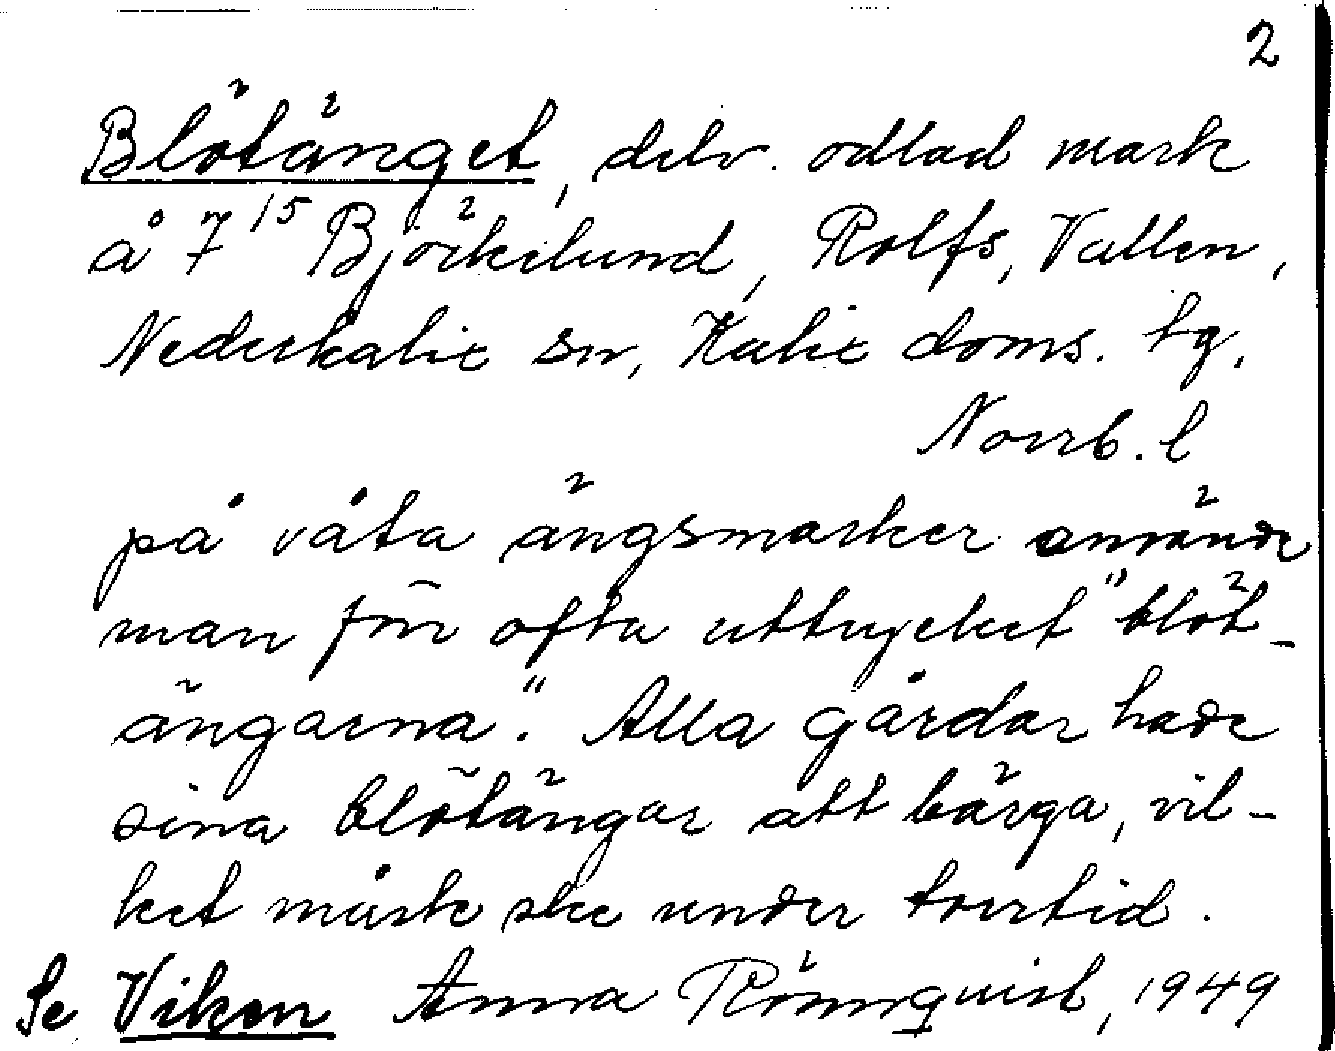 2
Blötänget, delv. odlad mark
å 7¹⁵ Björkelund, Rolfs, Vallen,
Nederkalix sn, Kalix doms. tg,
Norrb. l
på våta ängsmarker använde
man förr ofta uttrycket "blöt-
ängarna". Alla gårdar hade
sina blötängar att bärga, vil-
ket måste ske under torrtid.
Se Viken Anna Rönnquist, 1949